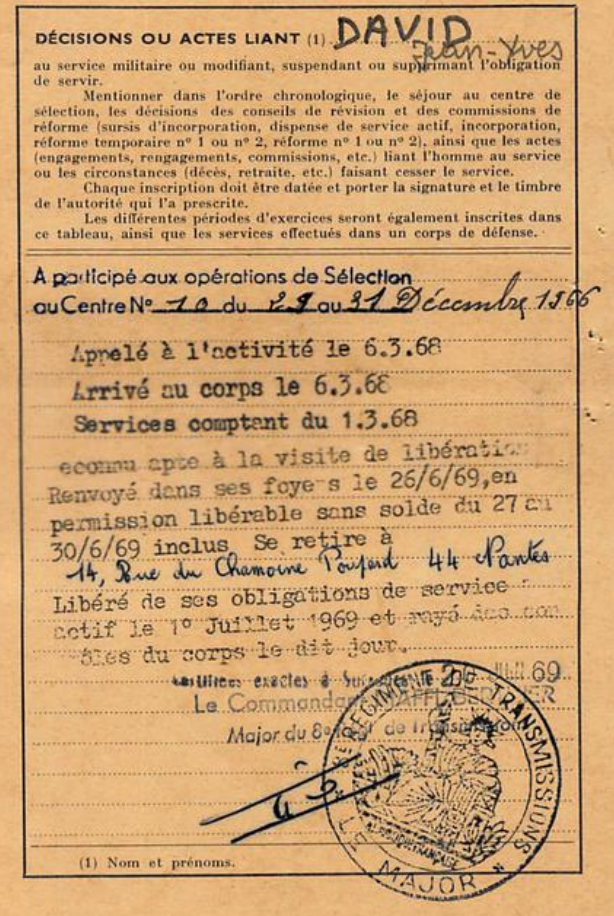 DÉCISIONS OU ACTES LIANT (1) DAVID
Jean-Yves
au service militaire ou modifiant, suspendant ou supprimant l'obligation
de servir.
Mentionner dans l'ordre chronologique, le séjour au centre de
sélection, les décisions des conseils de révision et des commissions de
réforme (sursis d'incorporation, dispense de service actif, incorporation,
réforme temporaire nº 1 ou nº 2, réforme nº 1 ou nº 2), ainsi que les actes
(engagements, rengagements, commissions, etc.) liant l'homme au service
ou les circonstances (décès, retraite, etc.) faisant cesser le service.
Chaque inscription doit être datée et porter la signature et le timbre
de l'autorité qui l'a prescrite.
Les différentes périodes d'exercices seront également inscrites dans
ce tableau, ainsi que les services effectués dans un corps de défense.
A participé aux opérations de Sélection
au Centre Nº 10 du 29 au 31 Décembre 1966
Appelé à l'activité le 6.3.68
Arrivé au corps le 6.3.68
Services comptant du 1.3.68
econnu apte à la visite de libération
Renvoyé dans ses foye s le 26/6/69, en
permission libérable sans solde du 27 au
30/6/69 inclus Se retire à
14, Rue du Chanoine Poupard 44 Nantes
Libéré de ses obligations de service
actif le 1º Juillet 1969 et rayé des con
ôles du corps le dit jour.
exactes à
JUIN 69
Le Commandant
Major du 8e de Transmissions
REGIMENT DE TRANSMISSIONS
LE MAJOR
(1) Nom et prénoms.